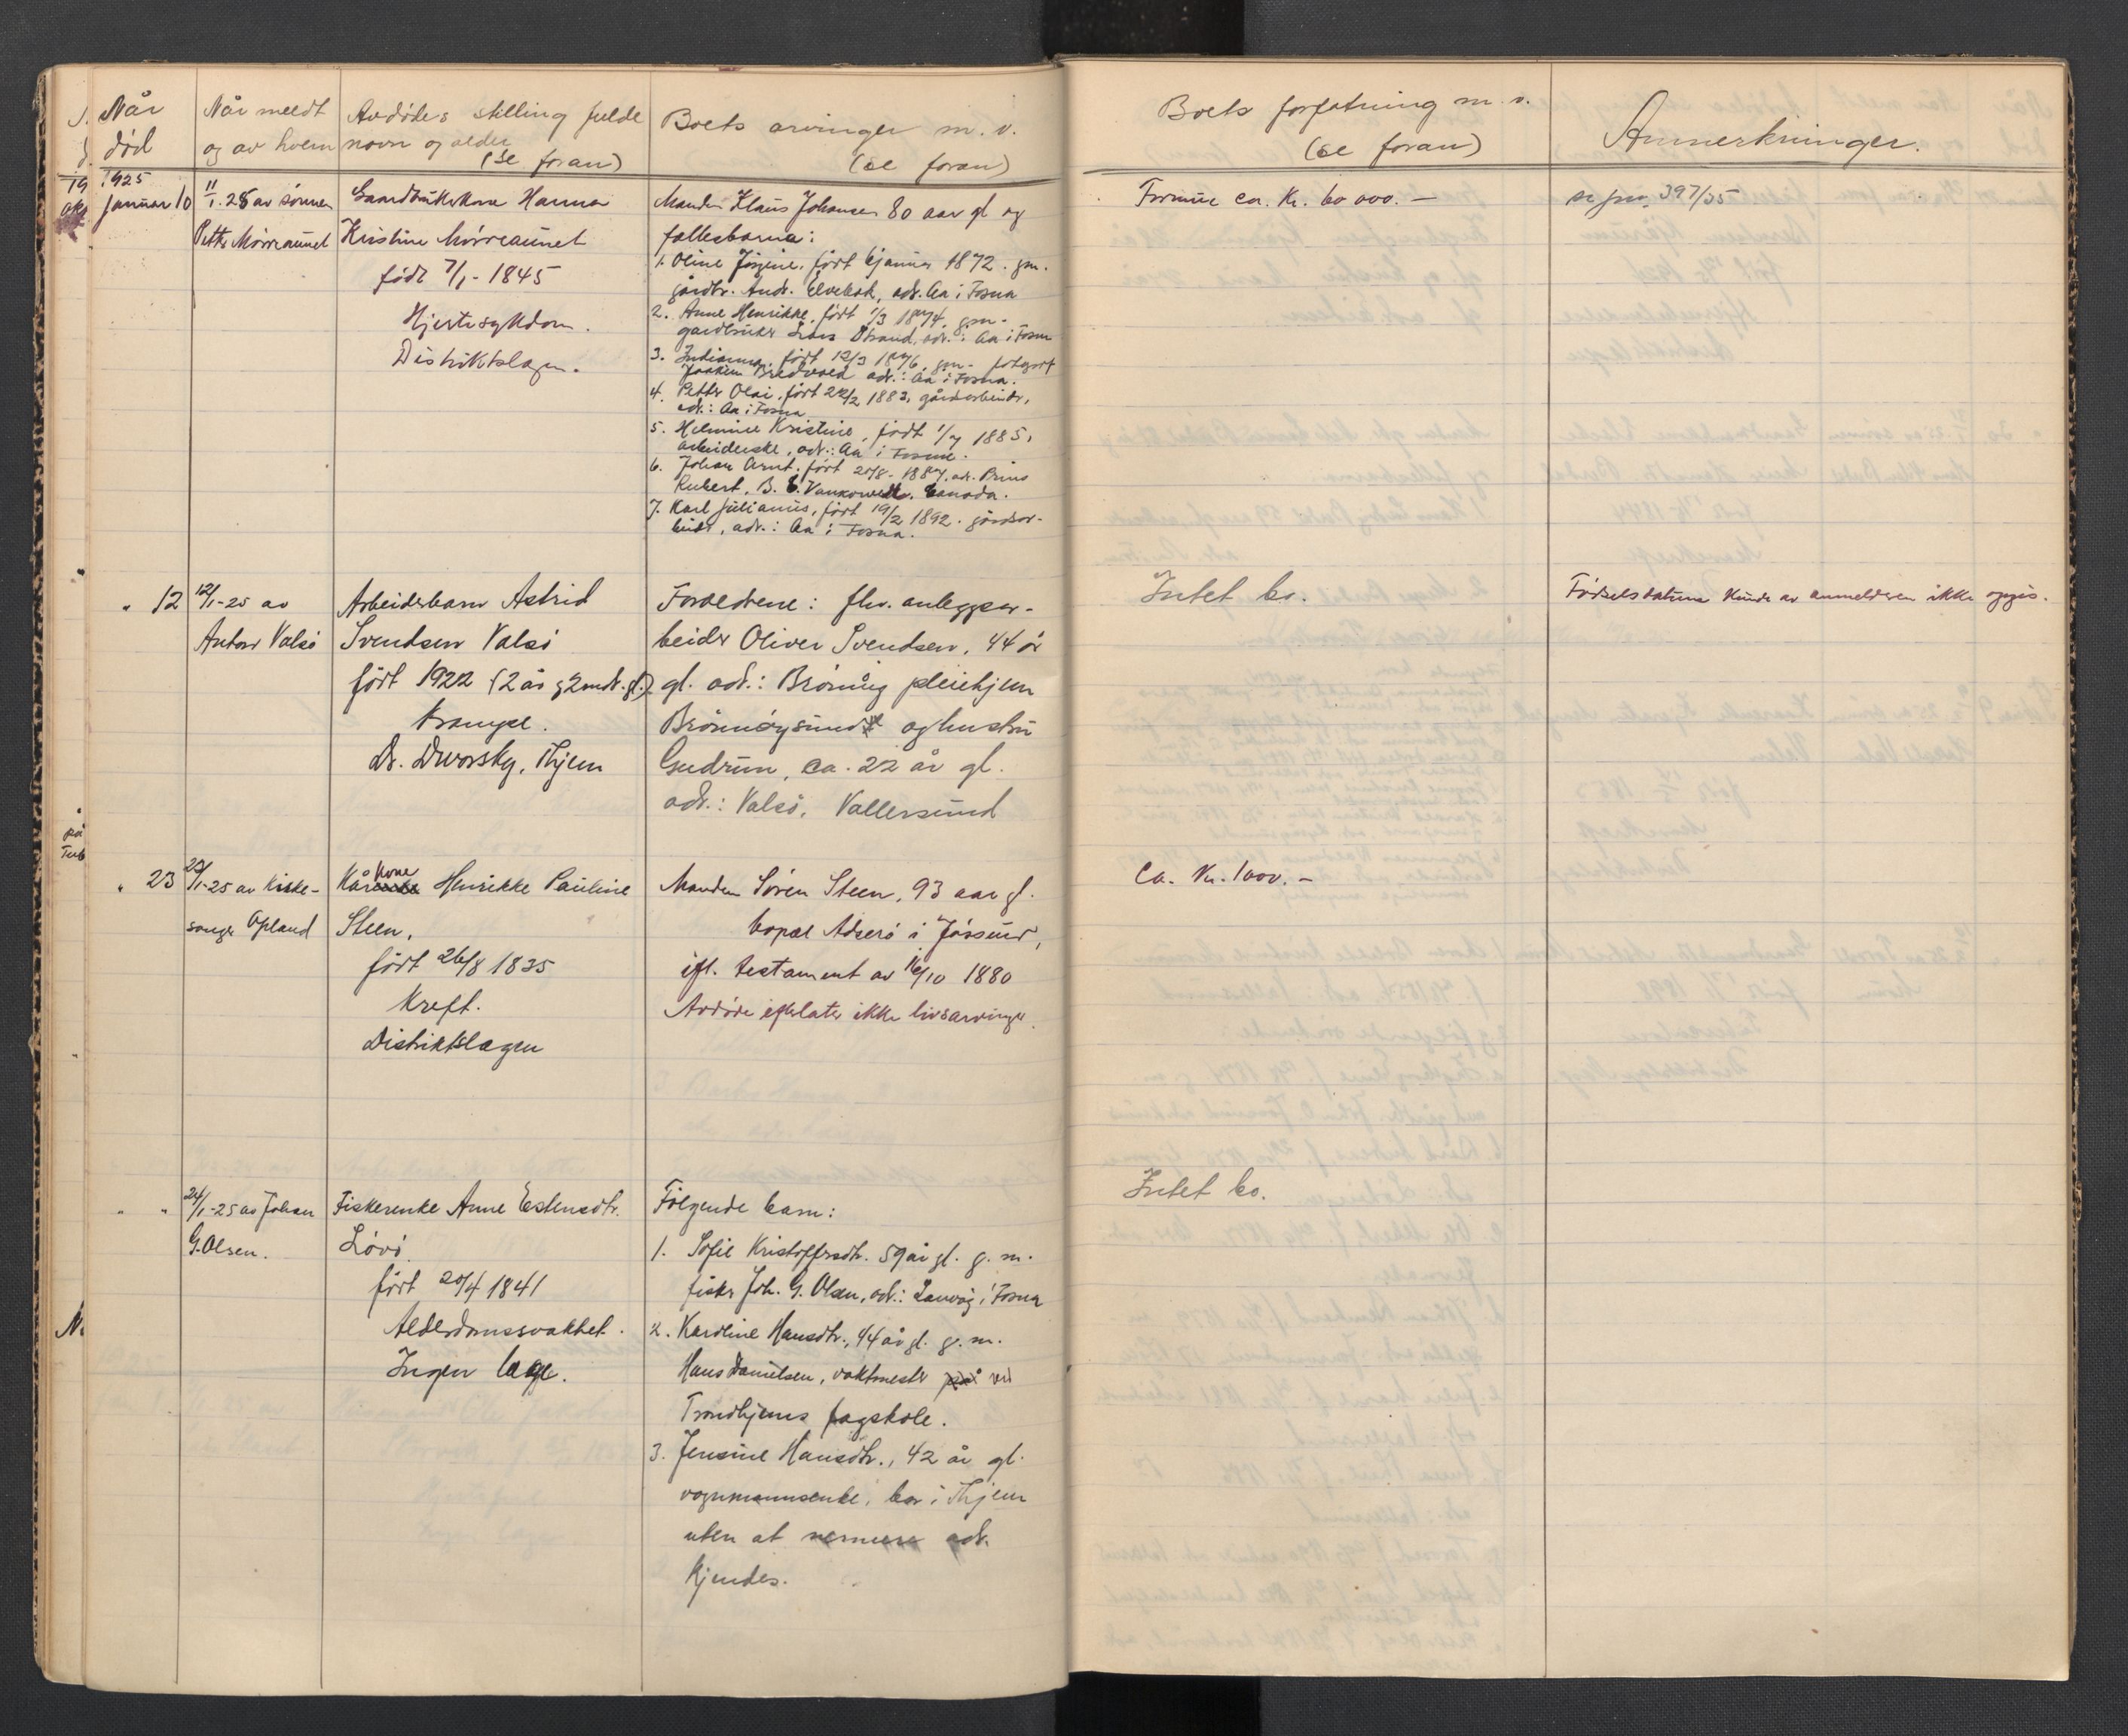 Når
død
Når meldt
og av hvem
Avdødes stilling fulde
navn og alder
(Se foran)
Boets arvinger m.v.
(se foran)
Boets forfatning m.v.
(se foran)
Anmerkninger.
1925
januar 10
11/1. 25 av sønnen
Petter Mørreaunet
Gaardbrukskone Hanna
Kristine Mørreaunet
født 7/1 - 1845
Hjertesykdom.
Distriktslægen.
Manden Klaus Johansen 80 aar gl og
fællesbarna:
1. Oline Jørgine, født 6 januar 1872. gm.
gårdbr. Andr. Elvebak, adr. Aa i Fosna
2. Anne Henrikke, født 1/3 1874, gm.
gaardbruker Lars Strand, adr.: Aa i Fosna
3. Indianna, født 12/3 1876, gm. fotograf
Joakim Bredvold adr.: Aa i Fosna.
4. Petter Olai, født 22/2 1883, gårdarbeider,
adr.: Aa i Fosna
5. Helmine Kristine, født 1/7 1885,
arbeiderske, adr.: Aa i Fosna.
6. Johan Arnt, født 20/8 - 1887, adr. Prins
Rubert, B. C. Vankower, Canada.
7. Karl Julianus, født 19/2 1892. gårdsar-
beider, adr.: Aa i Fosna.
Formue ca. Kr. 60 000. —
se jnr. 397/35
" 12
12/1-25 av
Anton Valsø
Arbeiderbarn Astrid
Svendsen Valsø
født 1922 (2 år og 2 mdr. gl.)
Krampe.
Dr. Dworsky, Thjem
Forældrene: fhv. anleggsar-
beider Oliver Svendsen, 44 år
gl. adr.: Brönäng pleiehjem
Brønnøysund og hustru
Gudrun, ca. 22 år gl.
adr.: Valsø, Vallersund
Intet bo.
Fødselsdatum kunde av anmelderen ikke opgis.
" 23
27/1-25 av Kirke-
sanger Opland
Kårkone Henrikke Pauline
Steen,
født 26/8 1835
Kreft.
Distriktslægen
Manden Søren Steen, 93 aar gl.
bopæl Adserø i Jøssund,
ifl. testament av 16/10 1880
Avdøde efterlater ikke livsarvinger.
Ca. Kr. 1000. —
" "
24/1-25 av Johan
G. Olsen.
Fiskerenke Anne Estensdtr.
Løvø.
født 20/4 1841
Alderdomssvakhet.
Ingen læge.
Følgende barn:
1. Sofie Kristoffersdtr. 59 år gl. g.m.
fisker Joh. G. Olsen, adr.: Lauvøy i Fosna
2. Karoline Hansdtr., 44 år gl. g.m.
Hans Danielsen, vaktmester på ved
Trondhjems fagskole.
3. Jensine Hansdtr., 42 år gl.
vognmannsenke, bor i Thjem
uten at nærmere adr.
kjendes.
Intet bo.